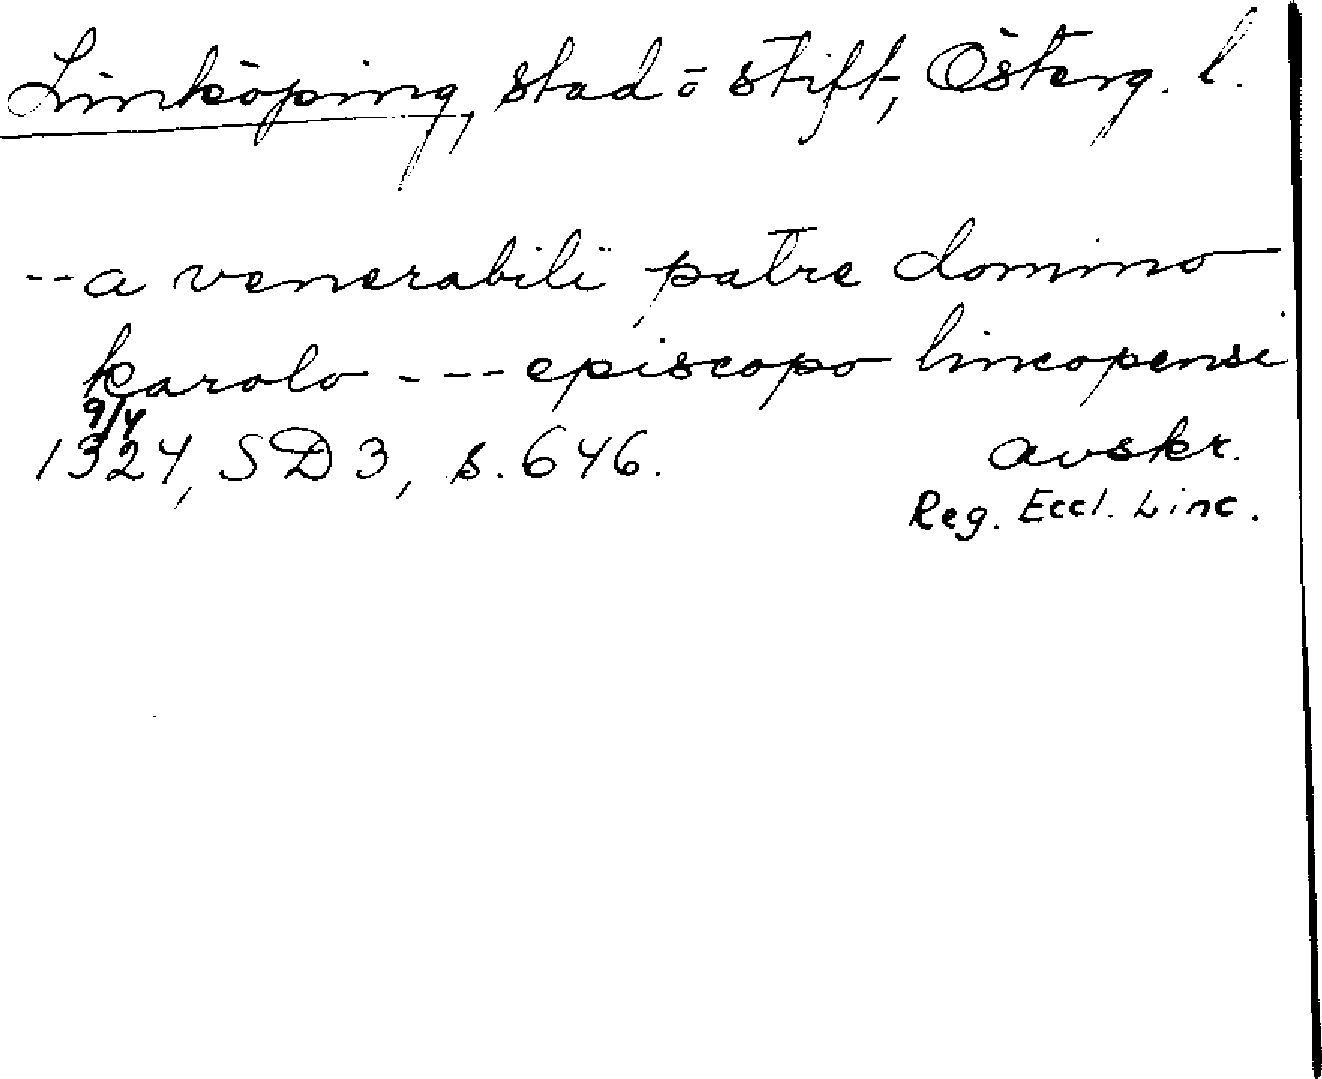 Linköping, stad ō stift, Österg. l.
-- a venerabili patre domino
karolo ---- episcopo lincopensi
9/4
1324, SD 3, s. 646. avskr.
Reg. Eccl. Linc.